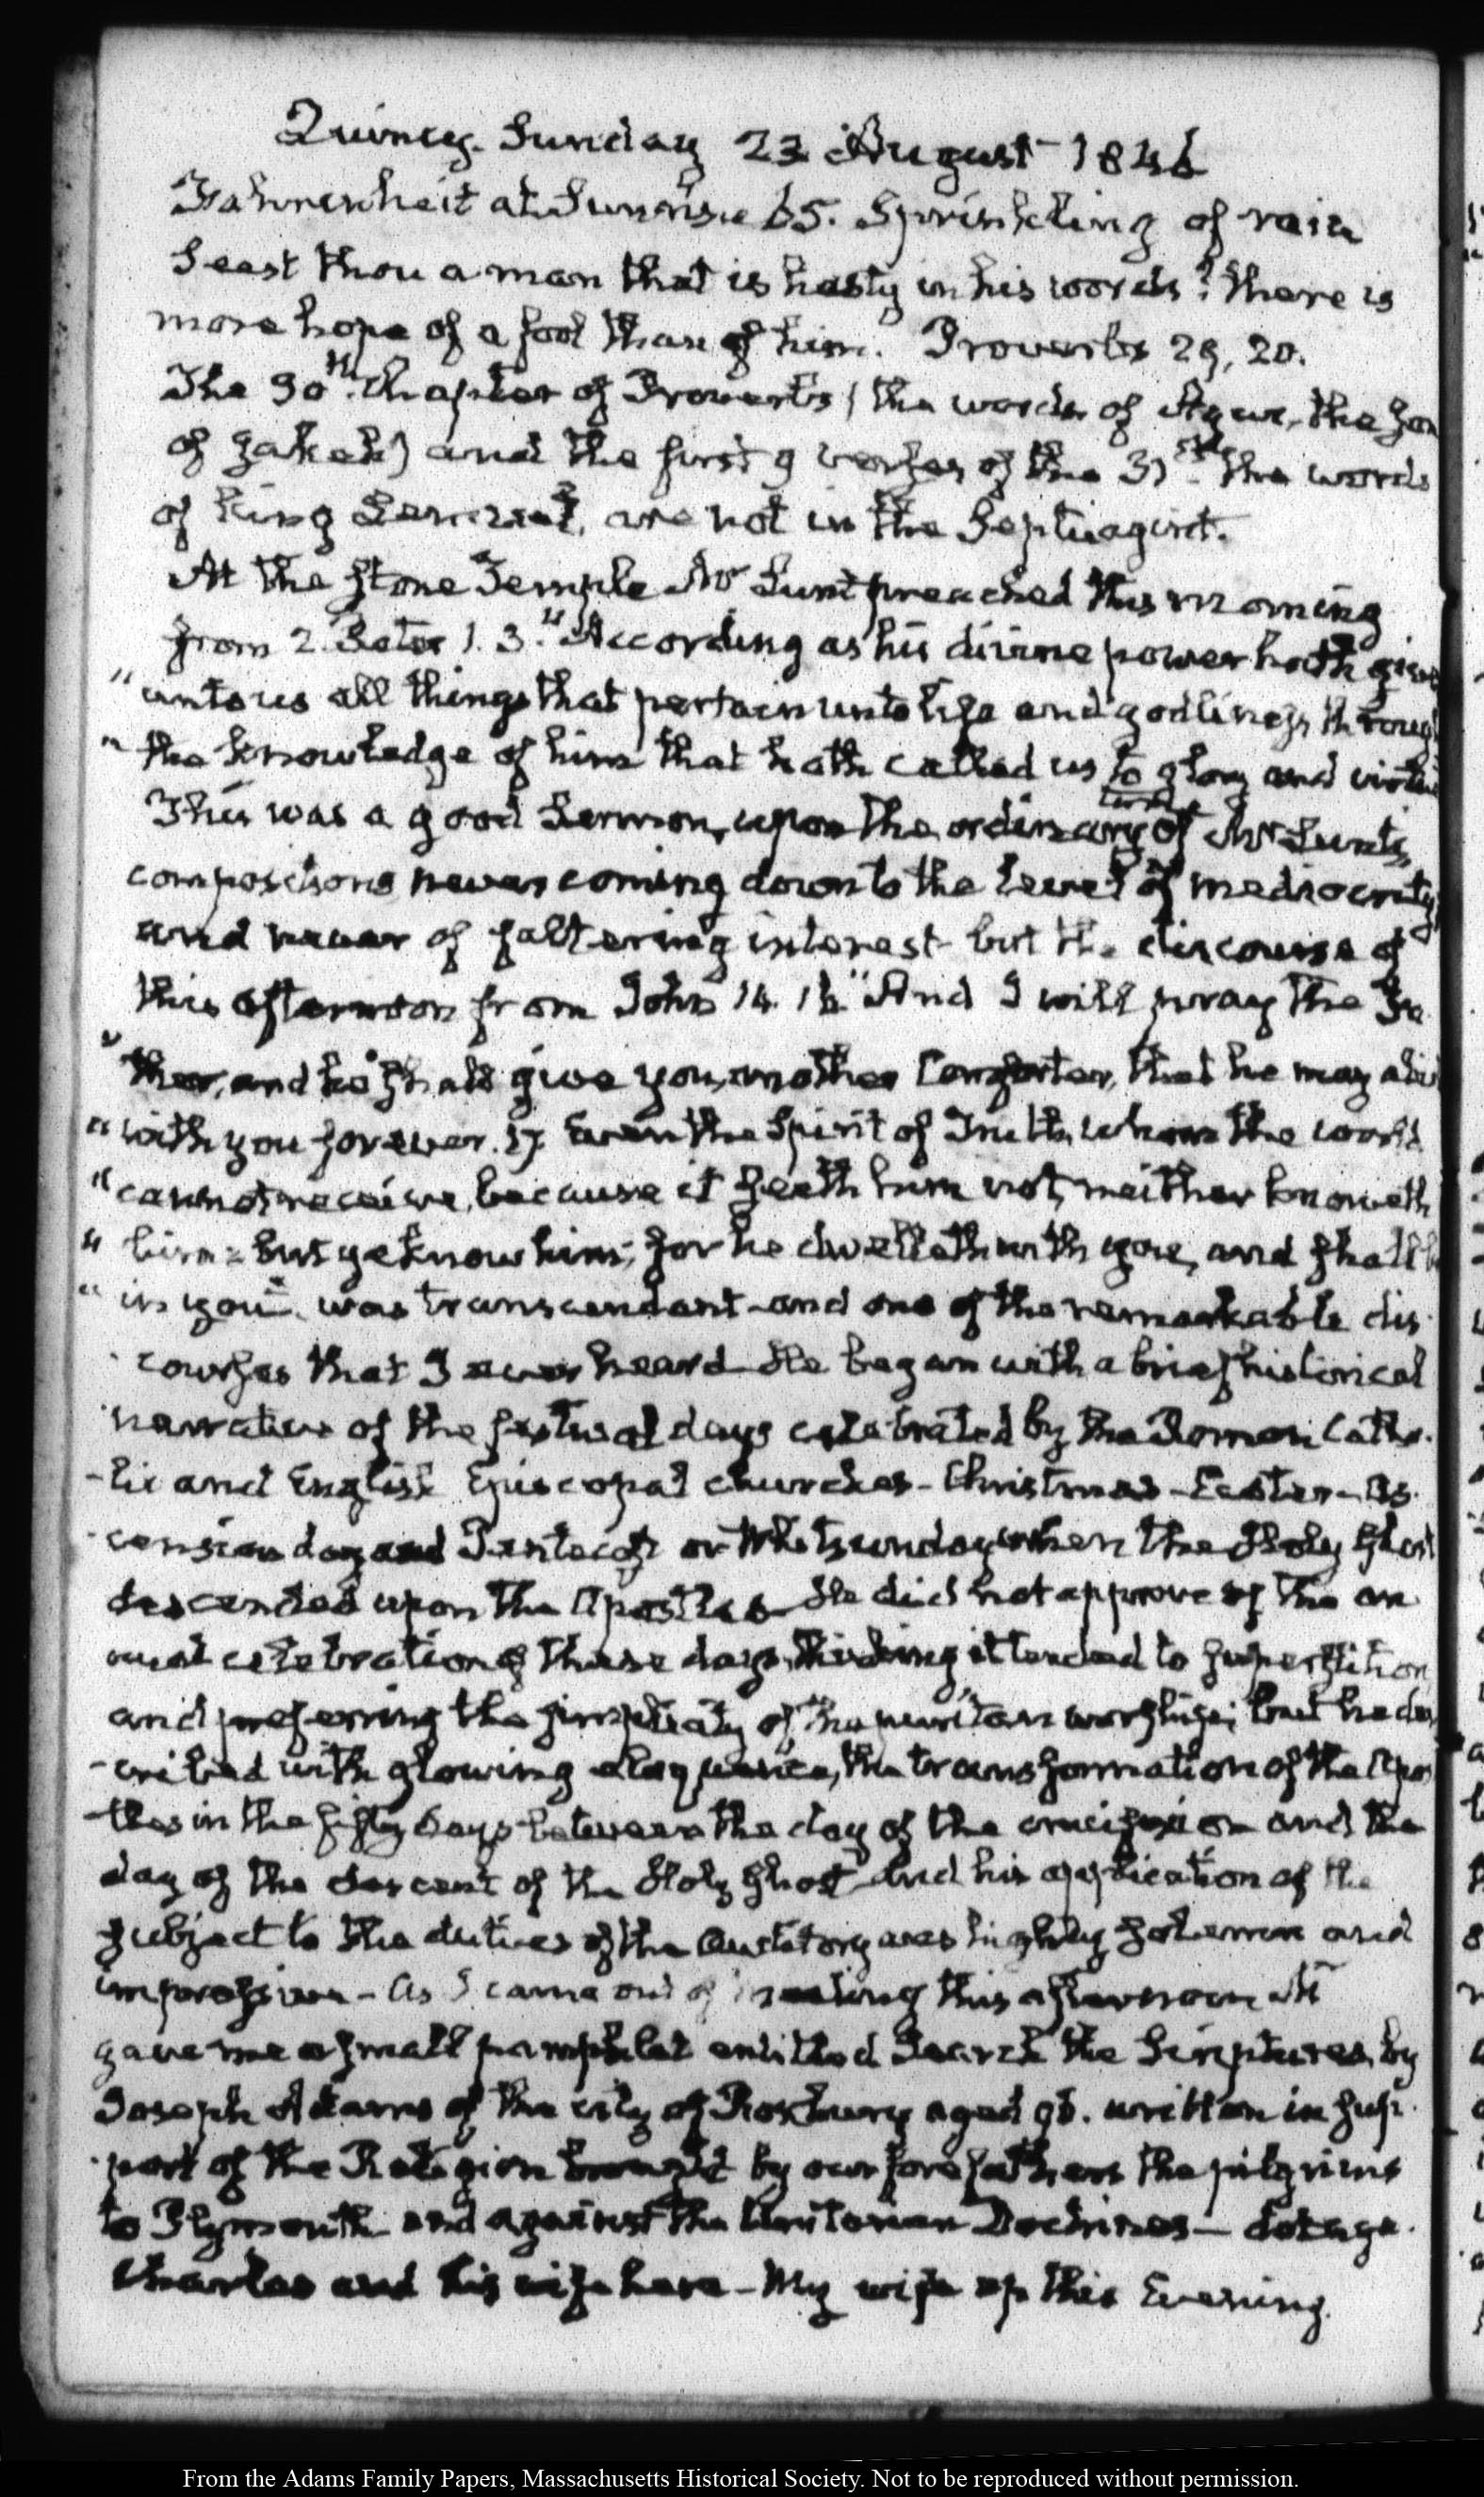 Quincy. Sunday 23 August 1846
Fahrenheit at Sunrise 65. Sprinkling of rain
Seest thou a man that is hasty in his words? there is
more hope of a fool than of him. Proverbs 29, 20.
The 30th. Chapter of Proverbs (the words of Agur, the son
of Jakeh) and the first 9 verses of the 31st. the words
of King Lemuel, are not in the Septuagint.
At the stone Temple Mr Lunt preached this morning
from 2. Peter 1. 3. "According as his divine power hath given
"unto us all things that pertain unto life and godliness through
"the knowledge of him that hath called us to glory and virtue
This was a good Sermon, upon the ordinary of Mr Lunt's
compositions never coming down to the level of mediocrity
and never of faltering interest but the discourse of
this afternoon from John 14. 16 "And I will pray the Fa
"ther, and he shall give you, another Comforter, that he may abide
"with you forever. 17. Even the Spirit of Truth, whom the world
"cannot receive, because it seeth him not, neither knoweth
"him: but ye know him; for he dwelleth with you, and shall be
"in you". was transcendant and one of the remarkable dis-
courses that I ever heard He began with a brief historical
narrative of the festival days celebrated by the Roman Catho-
-lic and English Episcopal churches - Christmas - Easter - As-
-cension day and Pentecost or Whitsunday when the Holy Ghost
descended upon the Apostles He did not approve of the an
nual celebration of these days, thinking it tended to superstition
and preferring the simplicity of the puritan worship; but he des
-cribed with glowing eloquence, the transformation of the Apos
-tles in the fifty days between the day of the crucifixion and the
day of the descent of the Holy Ghost And his application of the
subject to the duties of the Auditory was highly solemn and
impressive - As I came out of meeting this afternoon Mr
gave me a small pamphlet entitled Search the Scriptures, by
Joseph Adams of the city of Roxbury aged 96. written in sup-
-port of the Religion brought by our forefathers the pilgrims
to Plymouth and against the Unitarian Doctrines - dotage.
Charles and his wife here - My wife up this Evening.
From the Adams Family Papers, Massachusetts Historical Society. Not to be reproduced without permission.